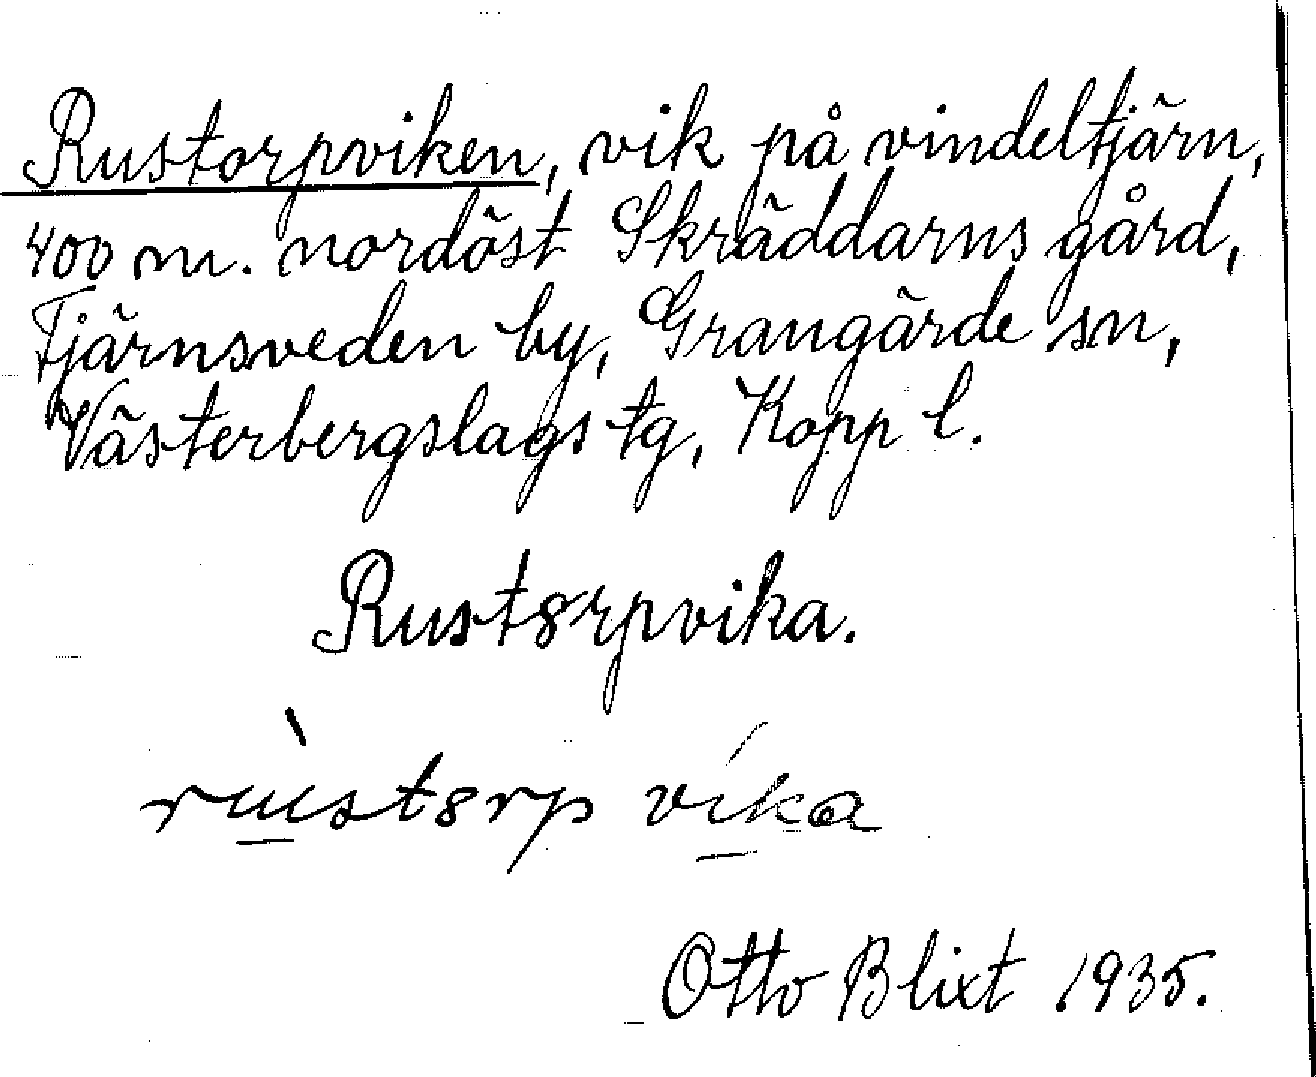 Rustorpviken, vik på vindeltjärn,
400 m. nordöst Skräddarns gård,
Tjärnsveden by, Grangärde sn,
Västerbergslags tg, Kopp l.
Rust8rpvika.
rùst8rp víka
Otto Blixt 1935.